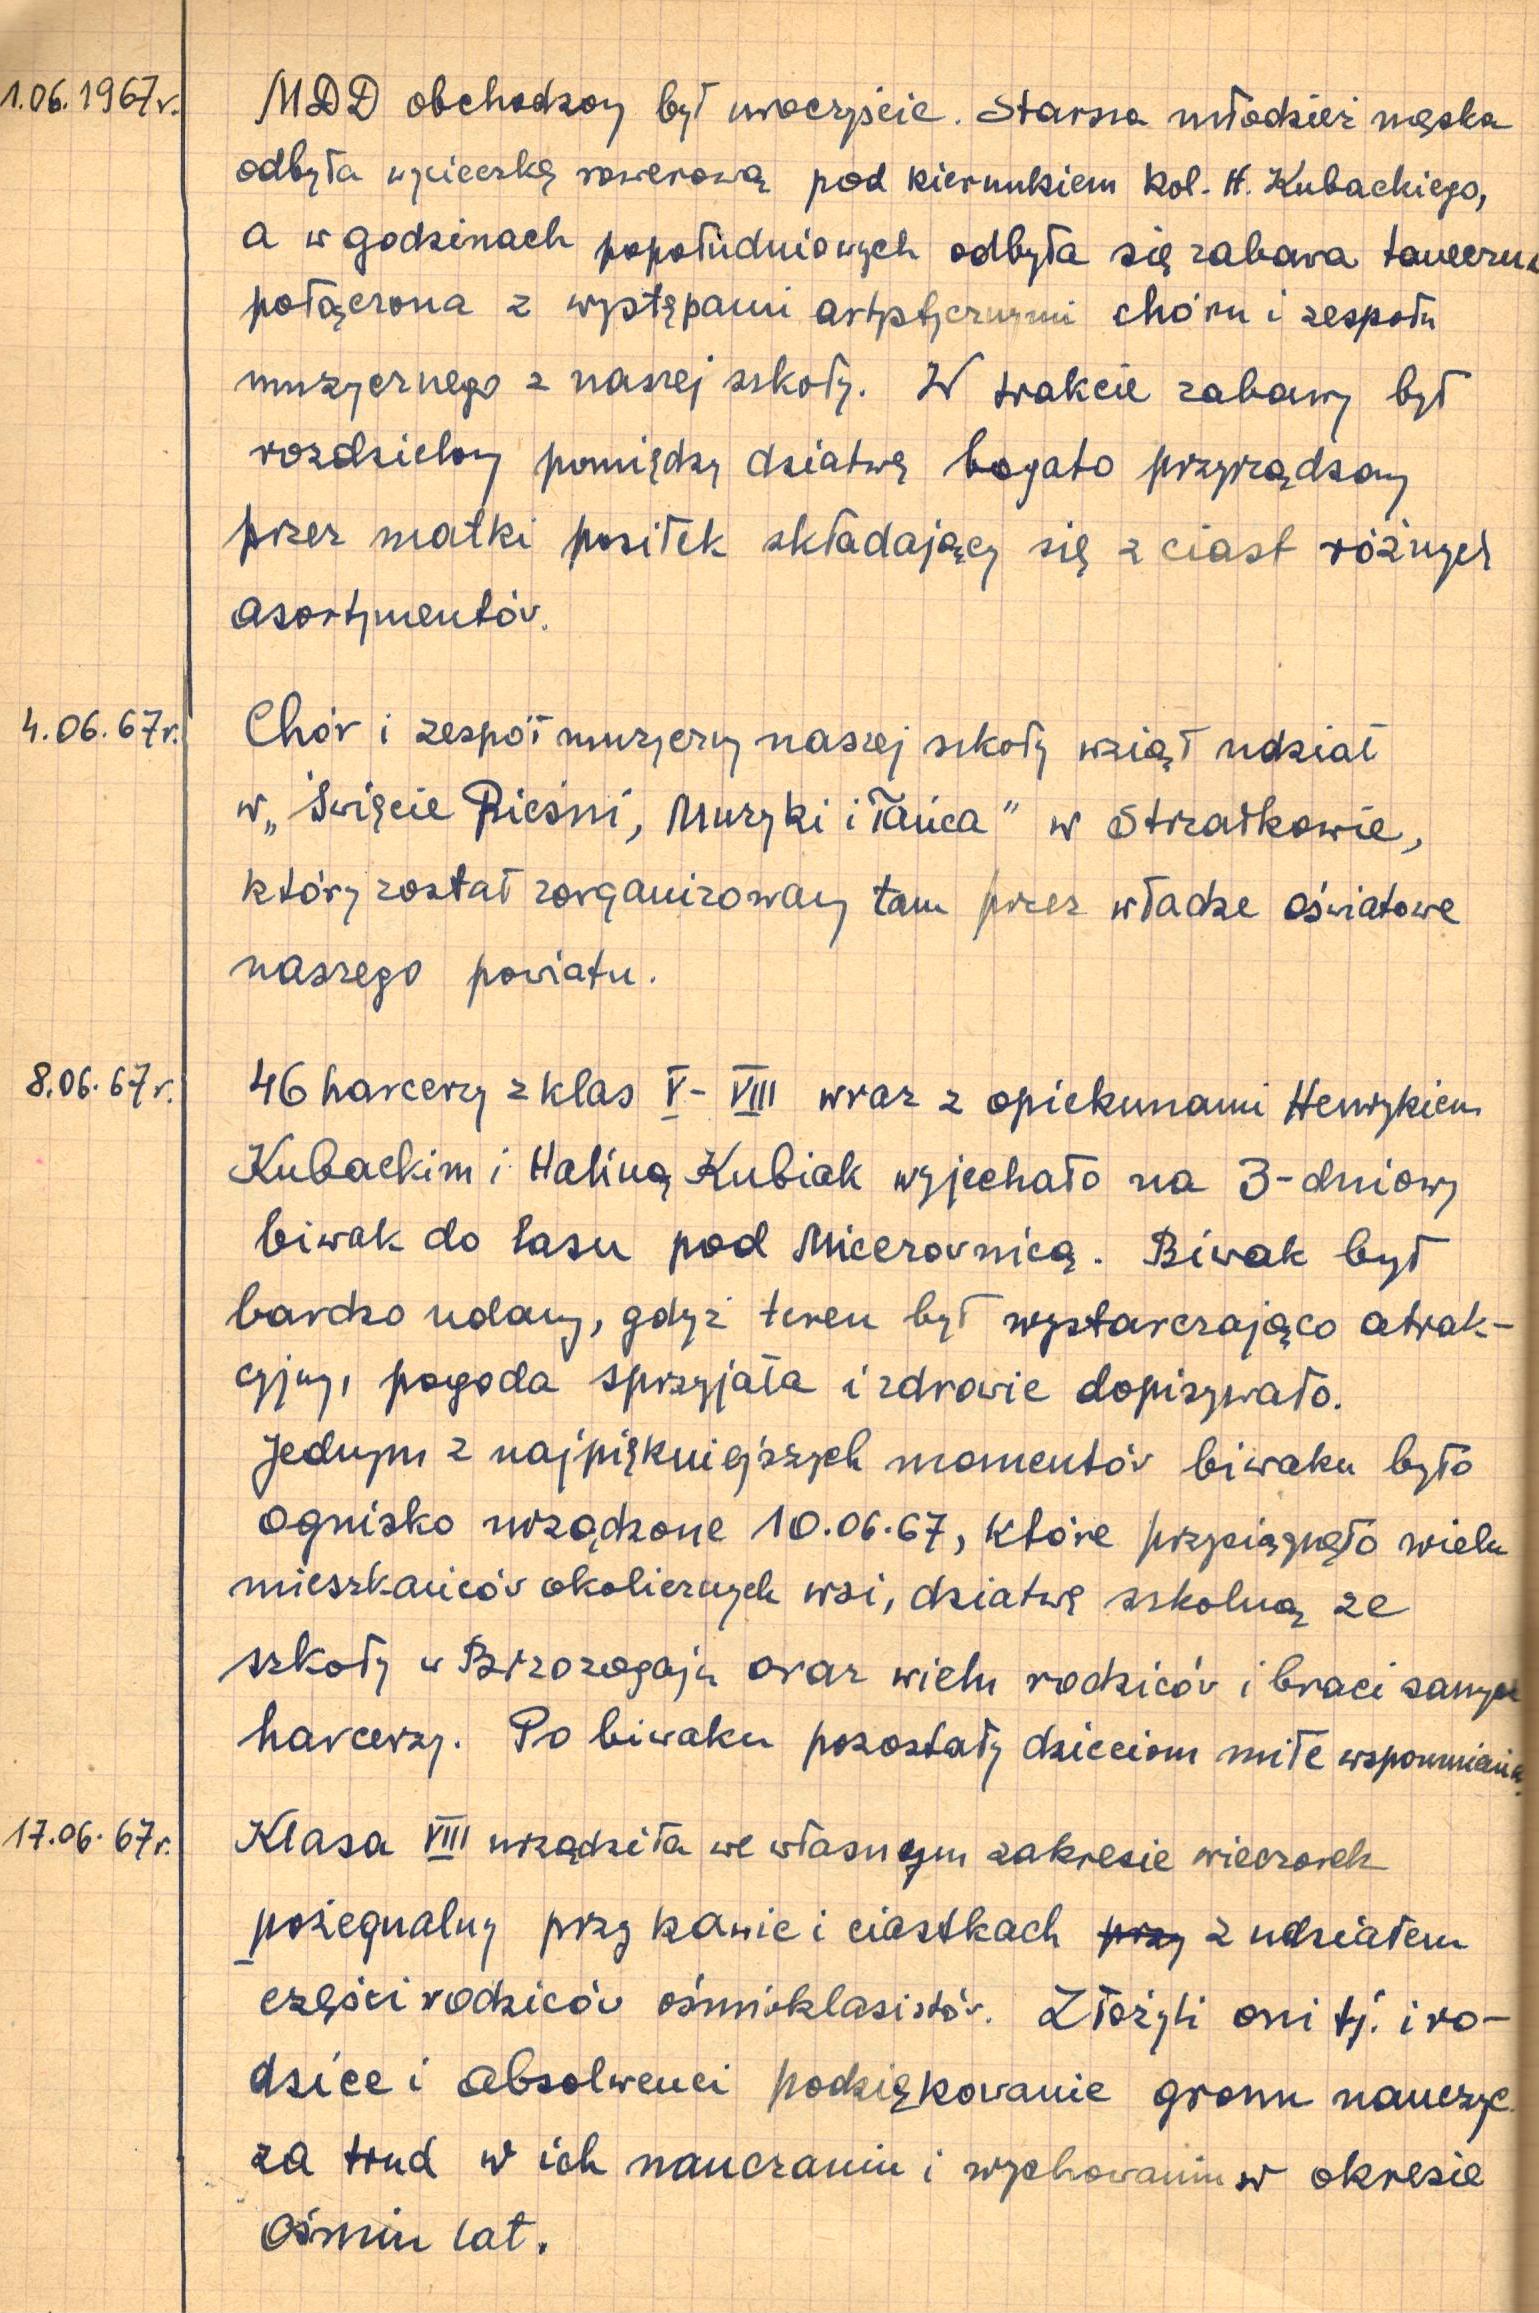 1.06.1967r. MDD obchodzony był uroczyście. Starsza młodzież męska
odbyła wycieczkę rowerową pod kierunkiem kol. H. Kubackiego,
a w godzinach popołudniowych odbyła się zabawa taneczna
połączona z występami artystycznymi chóru i zespołu
muzycznego z naszej szkoły. W trakcie zabawy był
rozdzielony pomiędzy dziatwę bogato przyrządzony
przez matki posiłek składający się z ciast różnych
asortymentów.
4.06.67r. Chór i zespół muzyczny naszej szkoły wziął udział
w „Święcie Pieśni, Muzyki i Tańca” w Strzałkowie,
który został zorganizowany tam przez władze oświatowe
naszego powiatu.
8.06.67r. 46 harcerzy z klas V - VIII wraz z opiekunami Henrykiem
Kubackim i Haliną Kubiak wyjechało na 3-dniowy
biwak do lasu pod Micerownicą. Biwak był
bardzo udany, gdyż teren był wystarczająco atrak-
cyjny, pogoda sprzyjała i zdrowie dopisywało.
Jednym z najpiękniejszych momentów biwaku było
ognisko urządzone 10.06.67, które przyciągnęło wielu
mieszkańców okolicznych wsi, dziatwę szkolną ze
szkoły w Brzozogaju oraz wielu rodziców i braci samych
harcerzy. Po biwaku pozostały dzieciom miłe wspomnienia
17.06.67r. Klasa VIII urządziła we własnym zakresie wieczorek
pożegnalny przy kawie i ciastkach przy z udziałem
części rodziców ośmioklasistów. Złożyli oni tj. i ro-
dzice i absolwenci podziękowanie gronu nauczyc.
za trud w ich nauczaniu i wychowaniu w okresie
ośmiu lat.